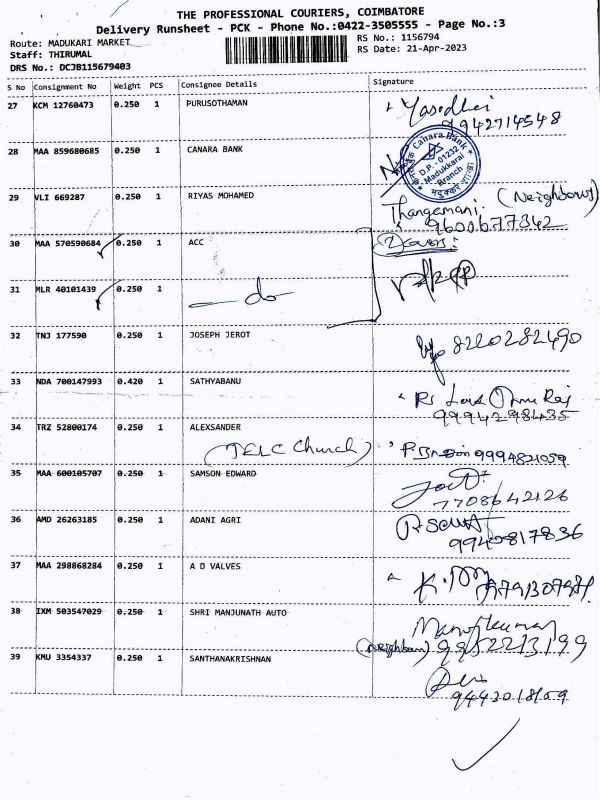 THE PROFESSIONAL COURIERS, COIMBATORE
Delivery Runsheet - PCK - Phone No.:0422-3505555 - Page No.:3
Route: MADUKARI MARKET
Staff: THIRUMAL
DRS No.: DCJB115679403
RS No.: 1156794
RS Date: 21-Apr-2023
S No Consignment No Weight PCS Consignee Details Signature
27 KCM 12760473 0.250 1 PURUSOTHAMAN
9942714548
28 MAA 859680685 0.250 1 CANARA BANK
Canara Bank
D.P.-01232
Madukkarai
Branch
29 VLI 669287 0.250 1 RIYAS MOHAMED
Thangamani (Neighbour)
9600677342
30 MAA 570590684 0.250 1 ACC
2 covers:
31 MLR 40101439 0.250 1 — do
32 TNJ 177590 0.250 1 JOSEPH JEROT
8220282490
33 NDA 700147993 0.420 1 SATHYABANU
9994298435
34 TRZ 52800174 0.250 1 ALEXSANDER
(TELC Church)
9994821059
35 MAA 600105707 0.250 1 SAMSON EDWARD
7708642126
36 AMD 26263185 0.250 1 ADANI AGRI
9940817836
37 MAA 298868284 0.250 1 A D VALVES
38 IXM 503547029 0.250 1 SHRI MANJUNATH AUTO
Manojkumar
(Neighbour) 9952213199
39 KMU 3354337 0.250 1 SANTHANAKRISHNAN